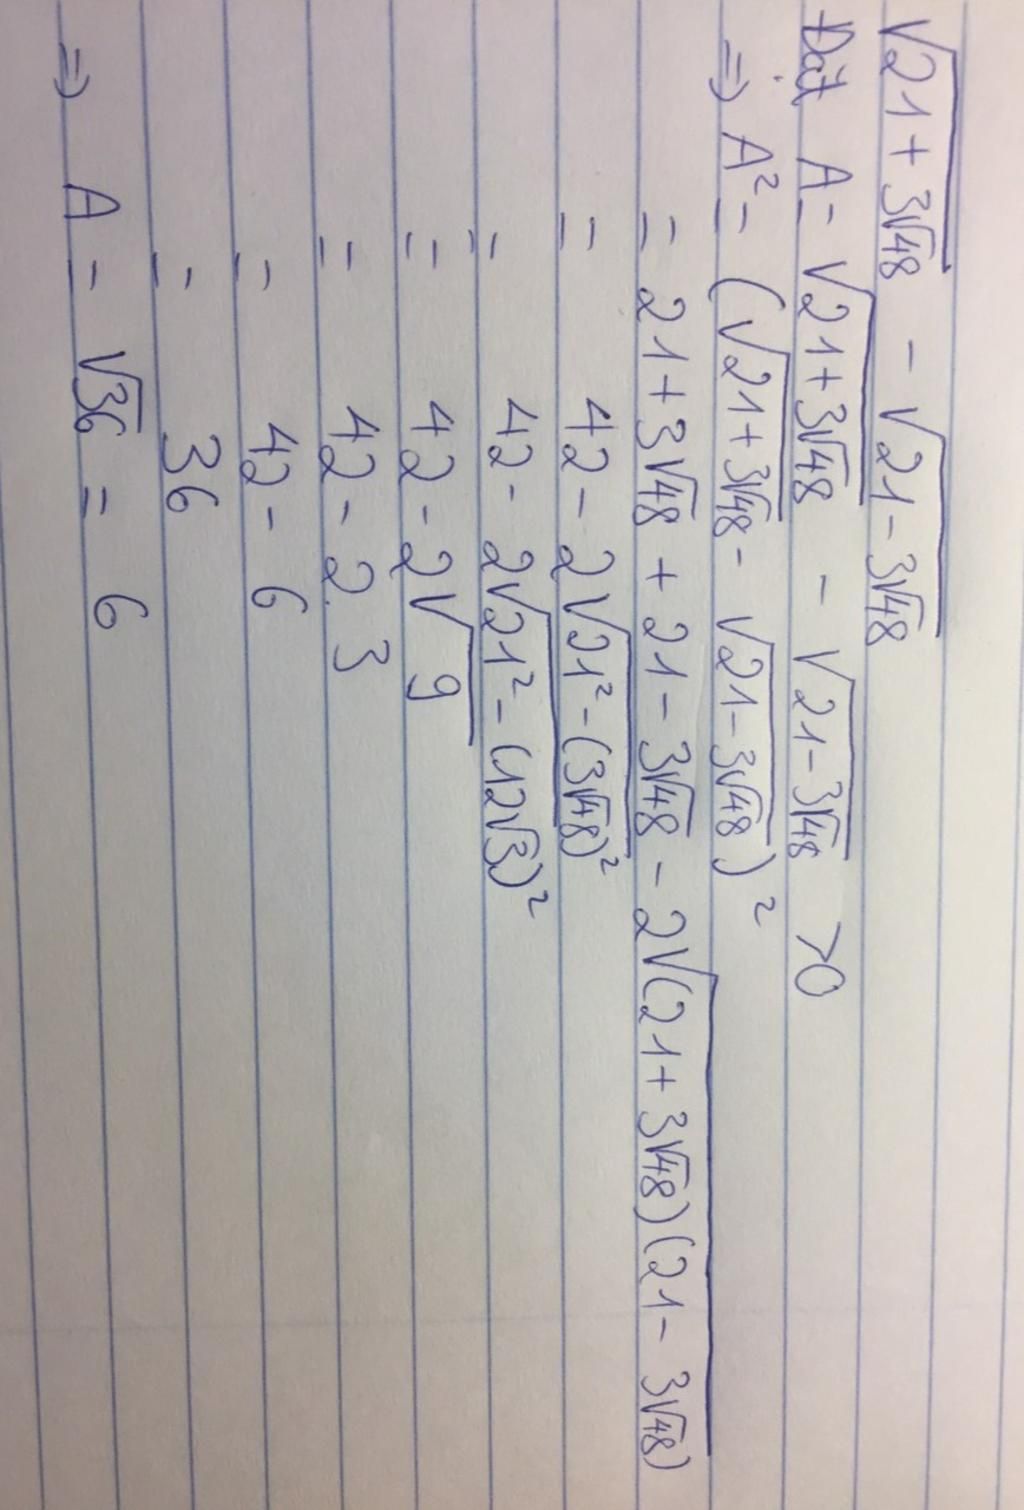 √(21+3√48) - √(21-3√48)
Đặt A = √(21+3√48) - √(21-3√48) >0
=> A² = (√(21+3√48) - √(21-3√48))²
= 21+3√48 + 21-3√48 - 2√((21+3√48)(21-3√48))
= 42 - 2√(21²-(3√48)²)
= 42 - 2√(21²-(12√3)²)
= 42 - 2√9
= 42 - 2.3
= 42 - 6
= 36
=> A = √36 = 6